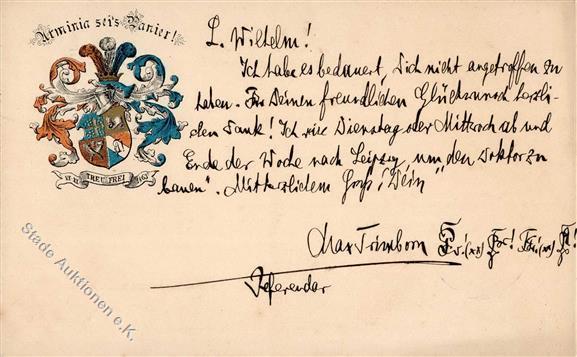 Arminia sei's Panier!
L. Wilhelm!
Ich habe es bedauert, Dich nicht angetroffen zu
haben. Für Deinen freundlichen Glückwunsch herzli-
chen Dank! Ich Dienstag oder Mittwoch ab und
Ende der Woche nach Leipzig, um "den Doktor zu
bauen". Mit herzlichem Gruß, Dein
Max Trimborn
Referendar
TREU FREI
Stade Auktionen e.K.